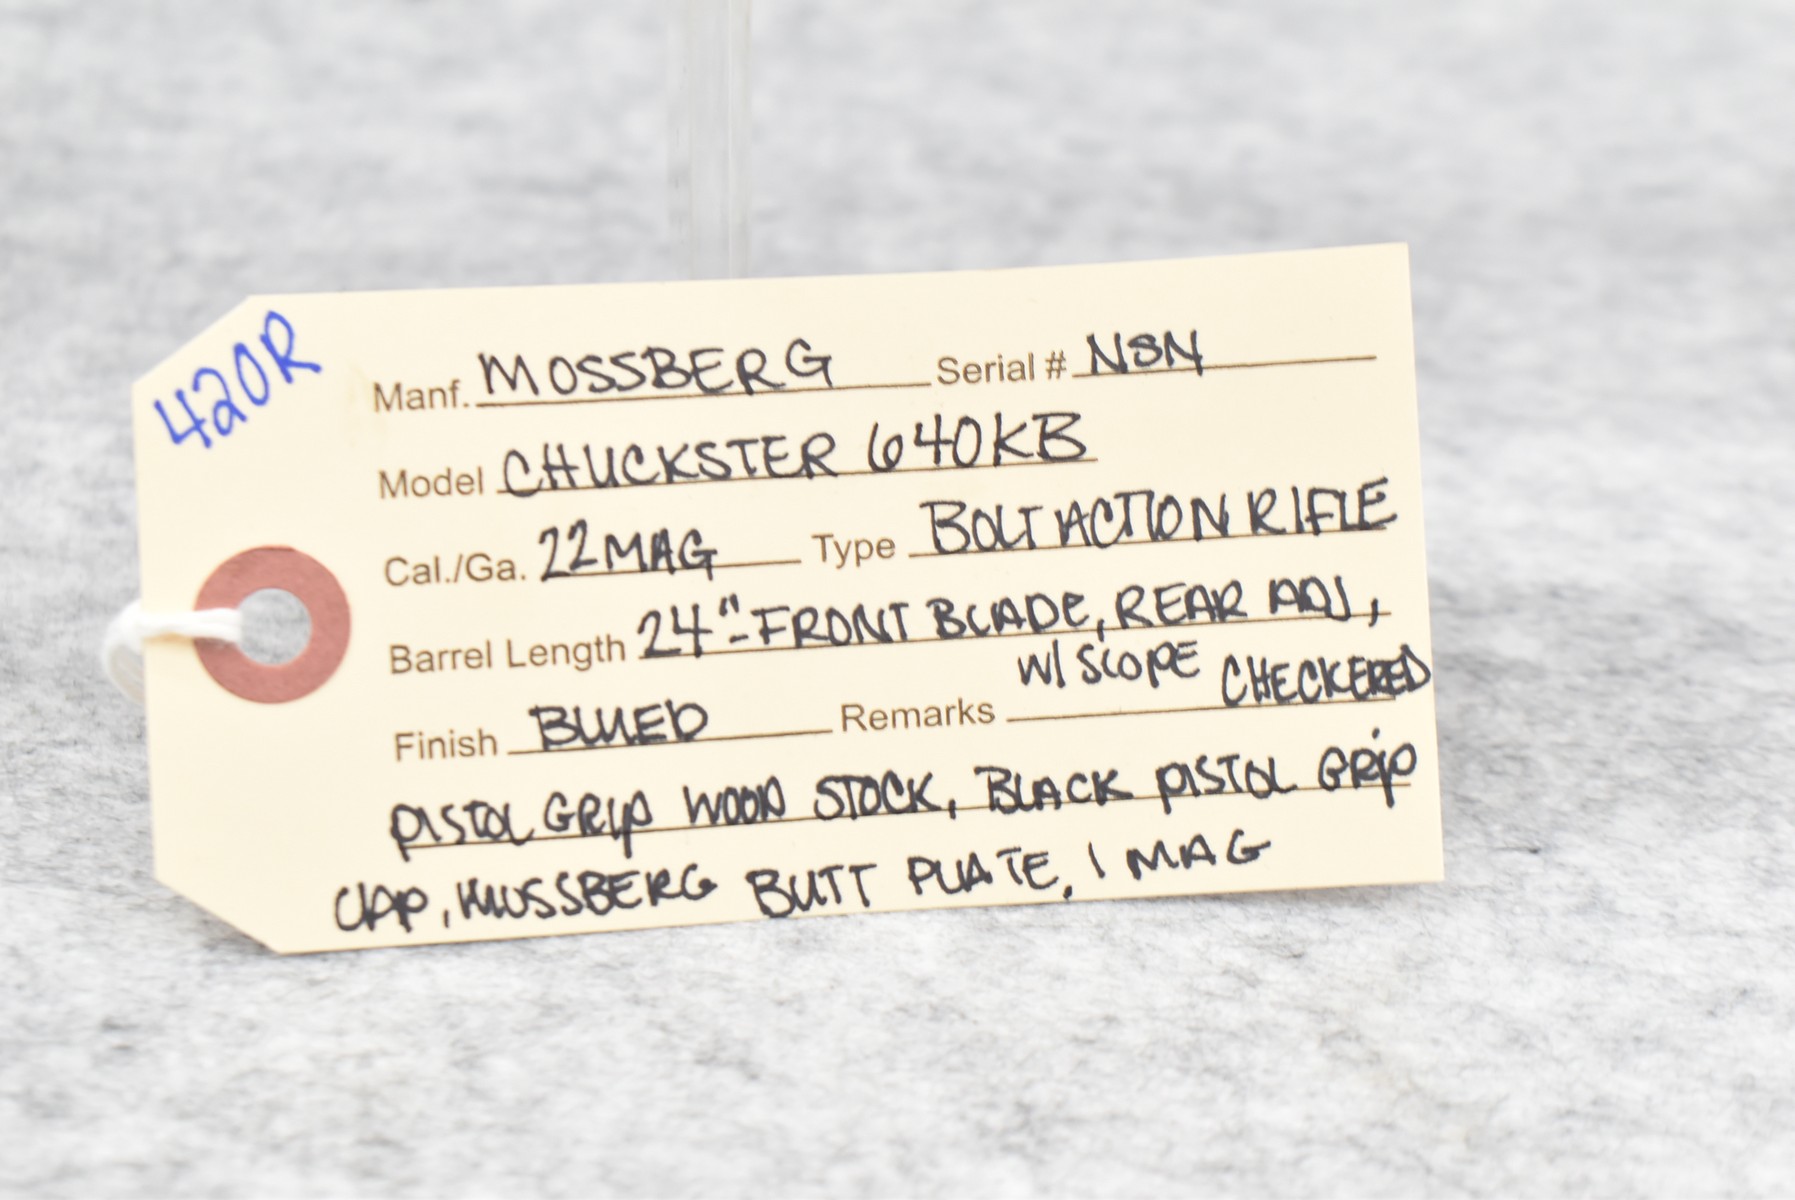 420R
Manf. MOSSBERG Serial # NSN
Model CHUCKSTER 640KB
Cal./Ga. 22MAG Type BOLT ACTION RIFLE
Barrel Length 24"-FRONT BLADE, REAR ADJ,
W/ SCOPE
Finish BLUED Remarks CHECKERED
PISTOL GRIP WOOD STOCK, BLACK PISTOL GRIP
CAP, MOSSBERG BUTT PLATE, 1 MAG